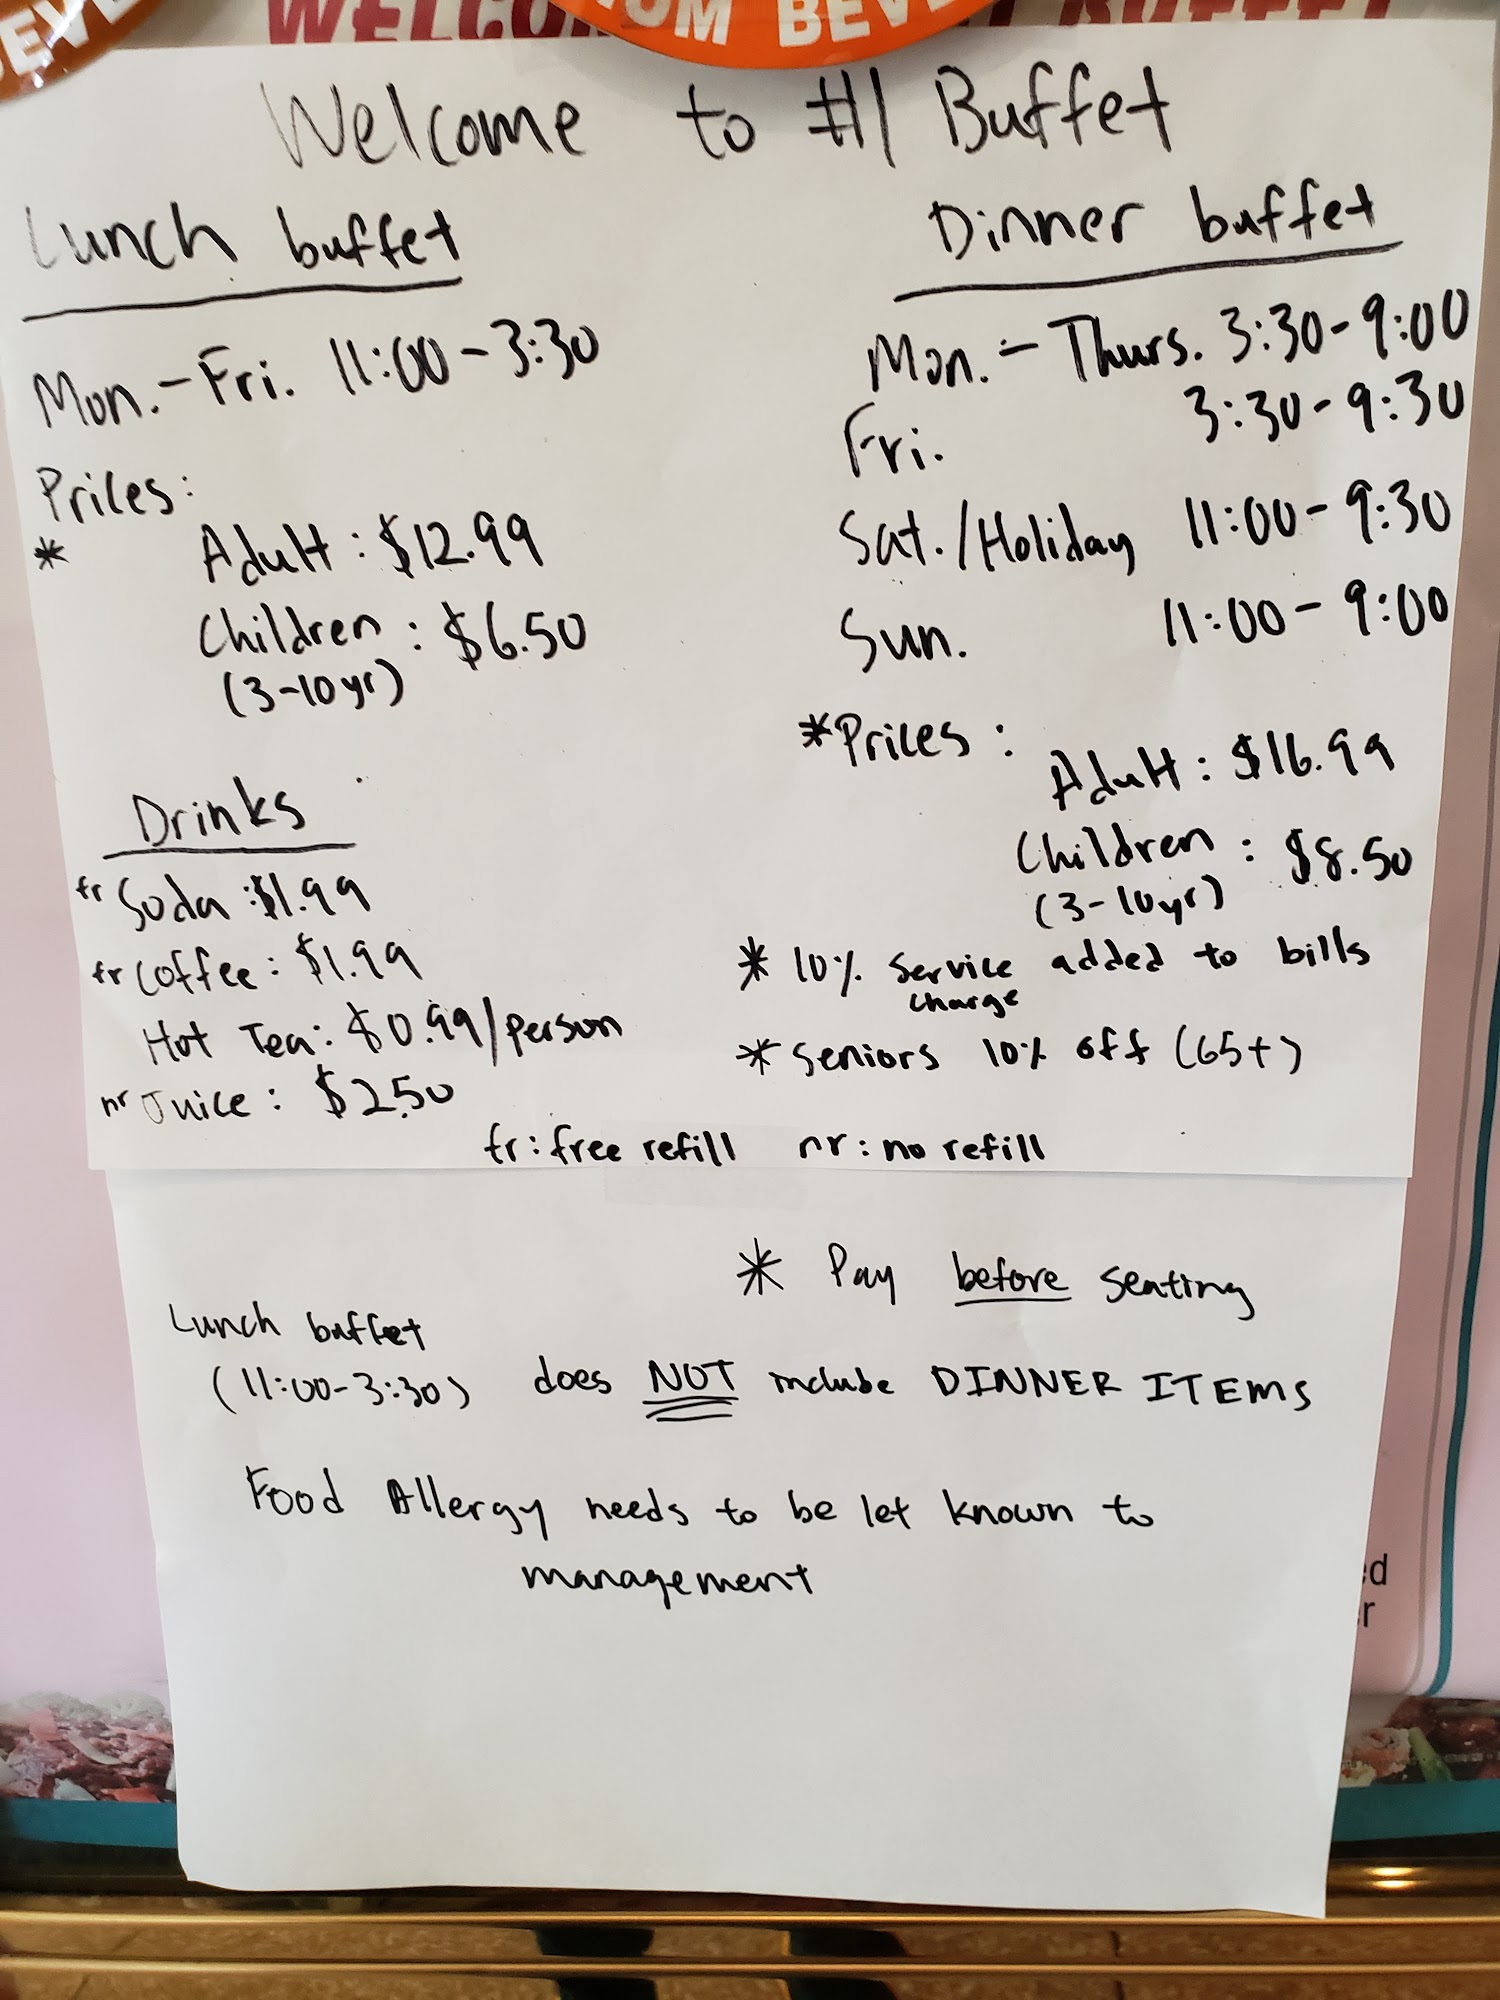 WELCO
OM BEV
BUFFET
Welcome to #1 Buffet
Lunch buffet
Mon.-Fri. 11:00-3:30
Prices:
* Adult: $12.99
Children: $6.50
(3-10yr)
Drinks
fr Soda: $1.99
fr Coffee: $1.99
Hot Tea: $0.99/person
nr Juice: $2.50
Dinner buffet
Mon.-Thurs. 3:30-9:00
Fri. 3:30-9:30
Sat./Holiday 11:00-9:30
Sun. 11:00-9:00
*Prices:
Adult: $16.99
Children: $8.50
(3-10yr)
* 10% Service charge added to bills
* Seniors 10% off (65+)
fr: free refill nr: no refill
* Pay before seating
Lunch buffet
(11:00-3:30) does NOT include DINNER ITEMS
Food Allergy needs to be let known to
management